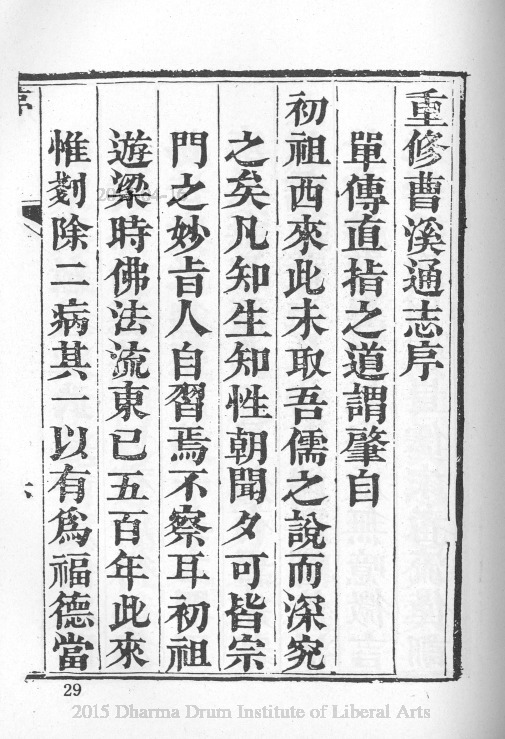 重修曹溪通志序
單傳直指之道謂肇自
初祖西來此未取吾儒之說而深究
之矣凡知生知性朝聞夕可皆宗
門之妙旨人自習焉不察耳初祖
遊梁時佛法流東已五百年此來
惟剗除二病其一以有爲福德當
29
2015 Dharma Drum Institute of Liberal Arts